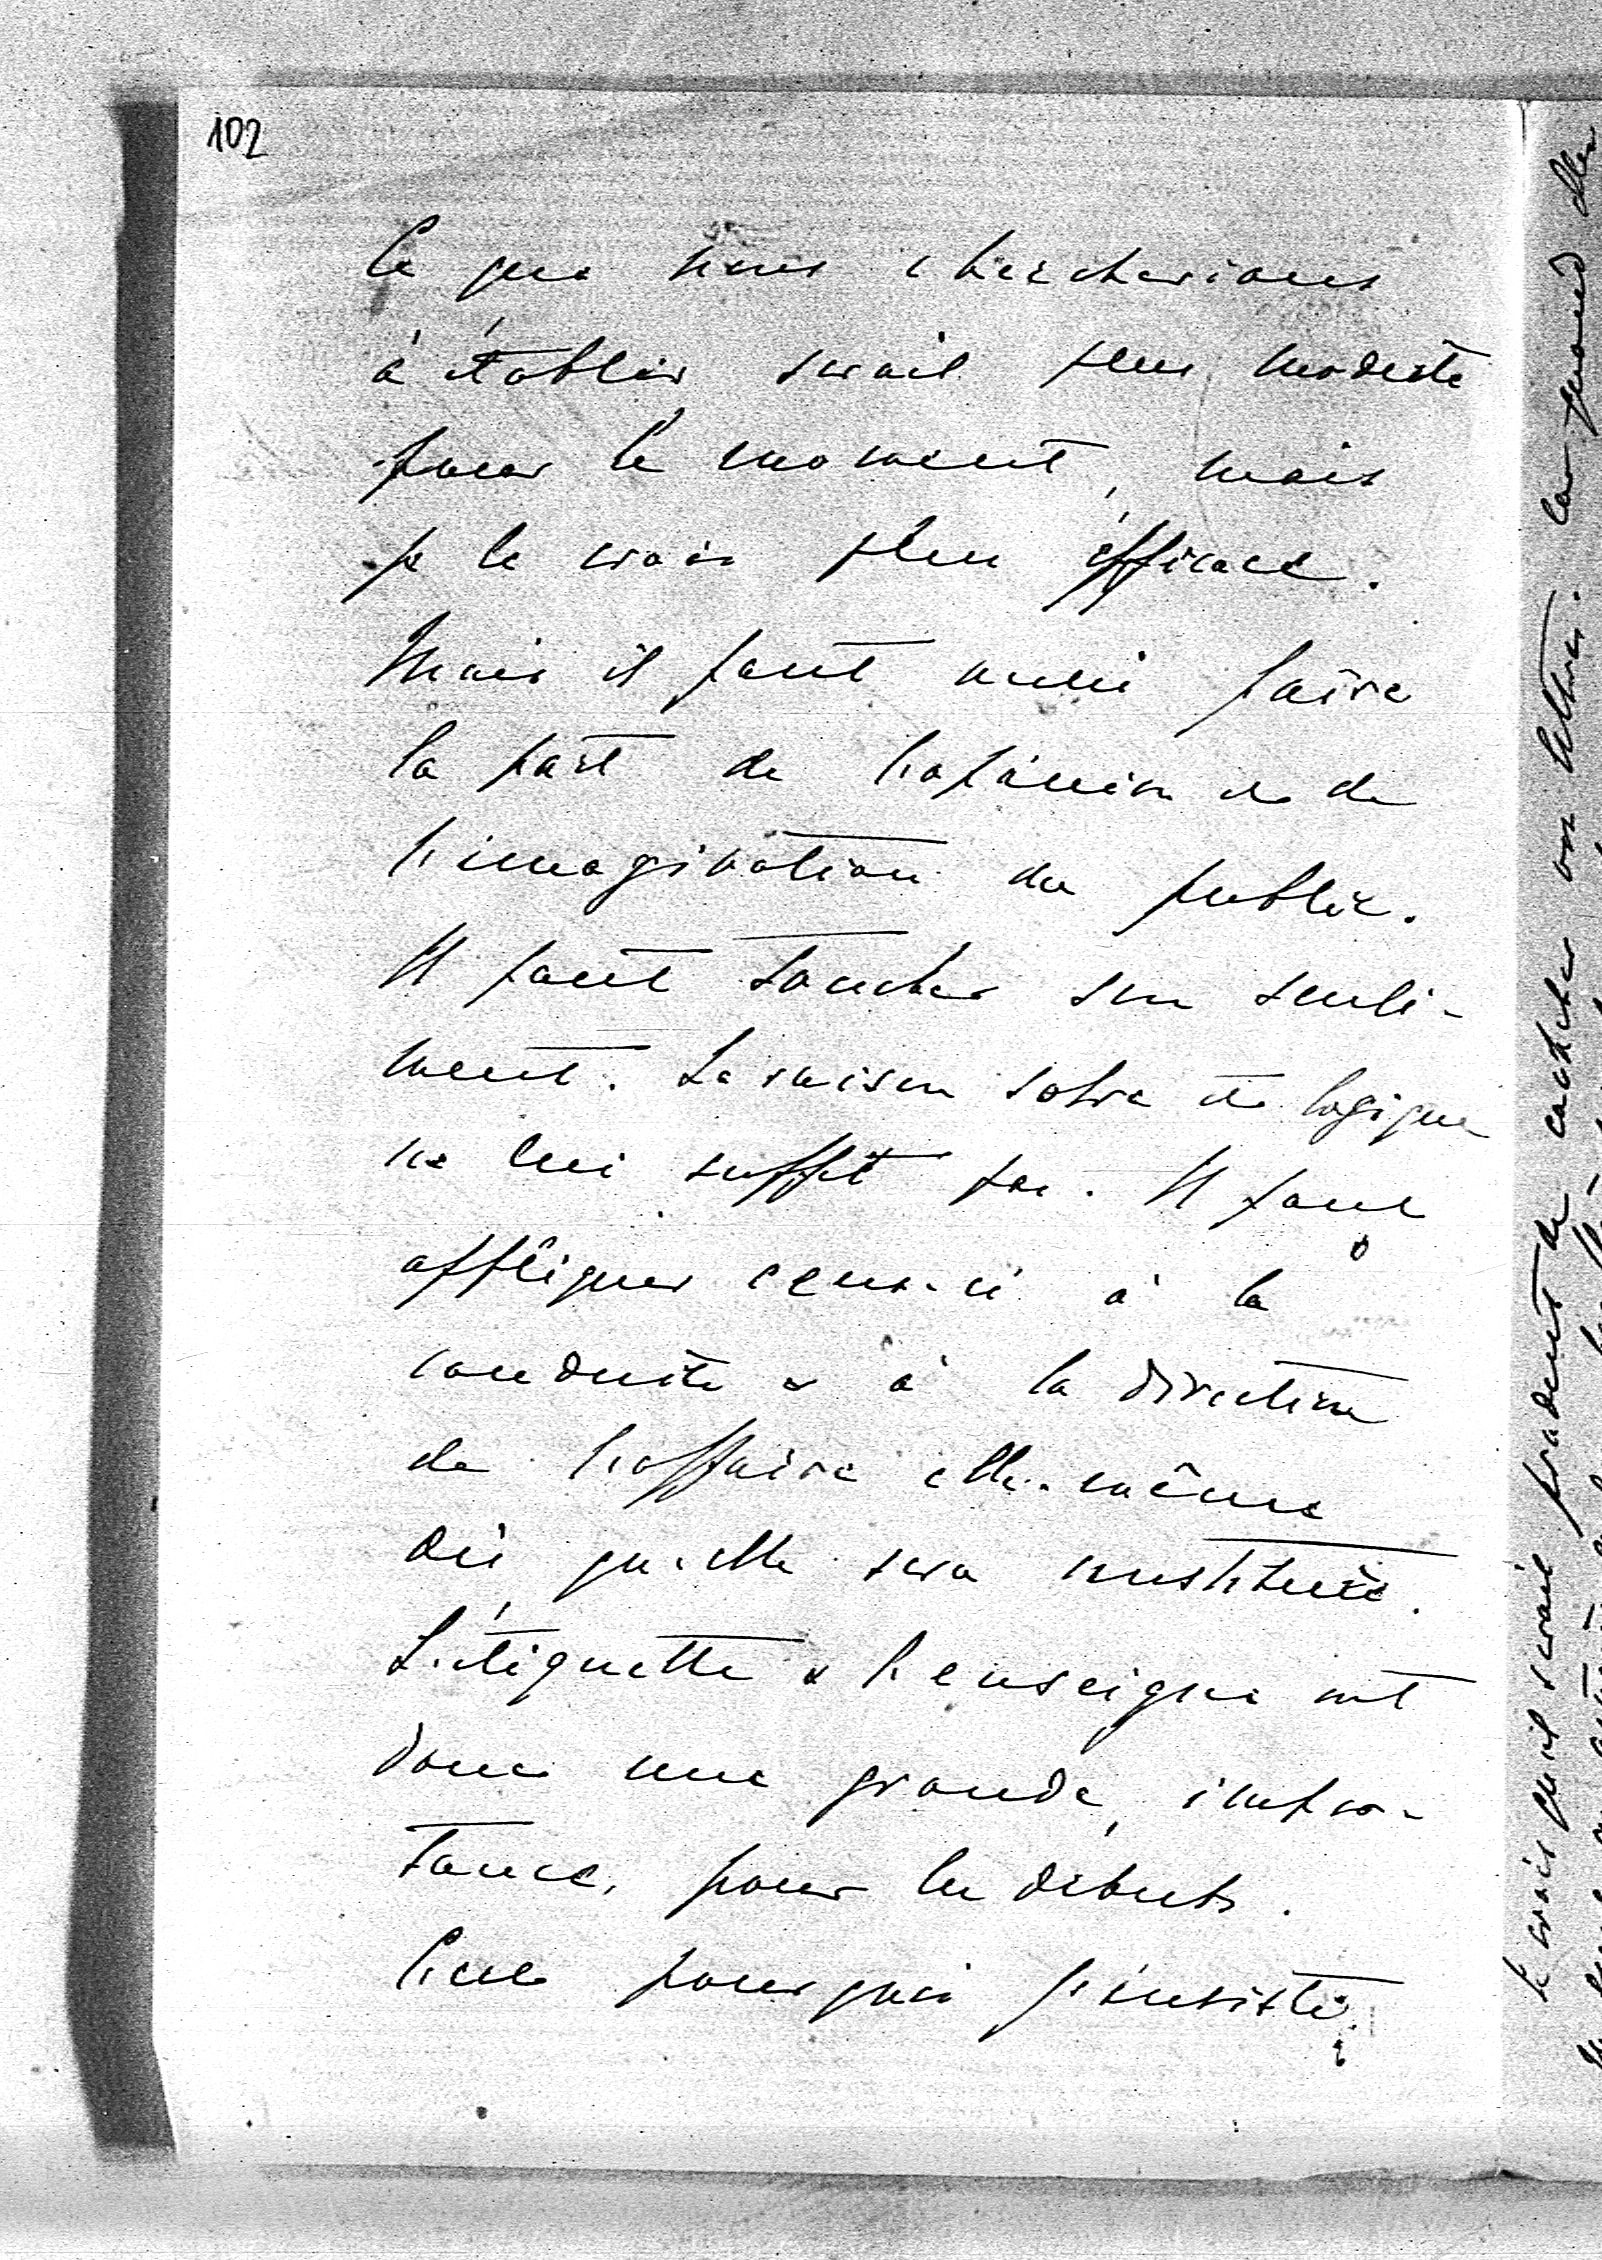 102
Ce que nous chercherions
à établir serait plus modeste
pour le moment, mais
je le crois plus éfficace.
Mais il faut aussi faire
la part de l'opinion et de
l'imagination du public.
Il faut toucher son senti-
ment. La raison sobre et logique
ne lui suffit pas. Il faut
appliquer ceux-ci à la
conduite & à la direction
de l'affaire elle-même
dès qu'elle sera constituée.
L'étiquette & l'enseigne ont
donc une grande, impor-
tance, pour les débuts.
C'est pourquoi j'insiste
Je crois qu'il serait prudent de cacheter vos lettres. Car quand elles